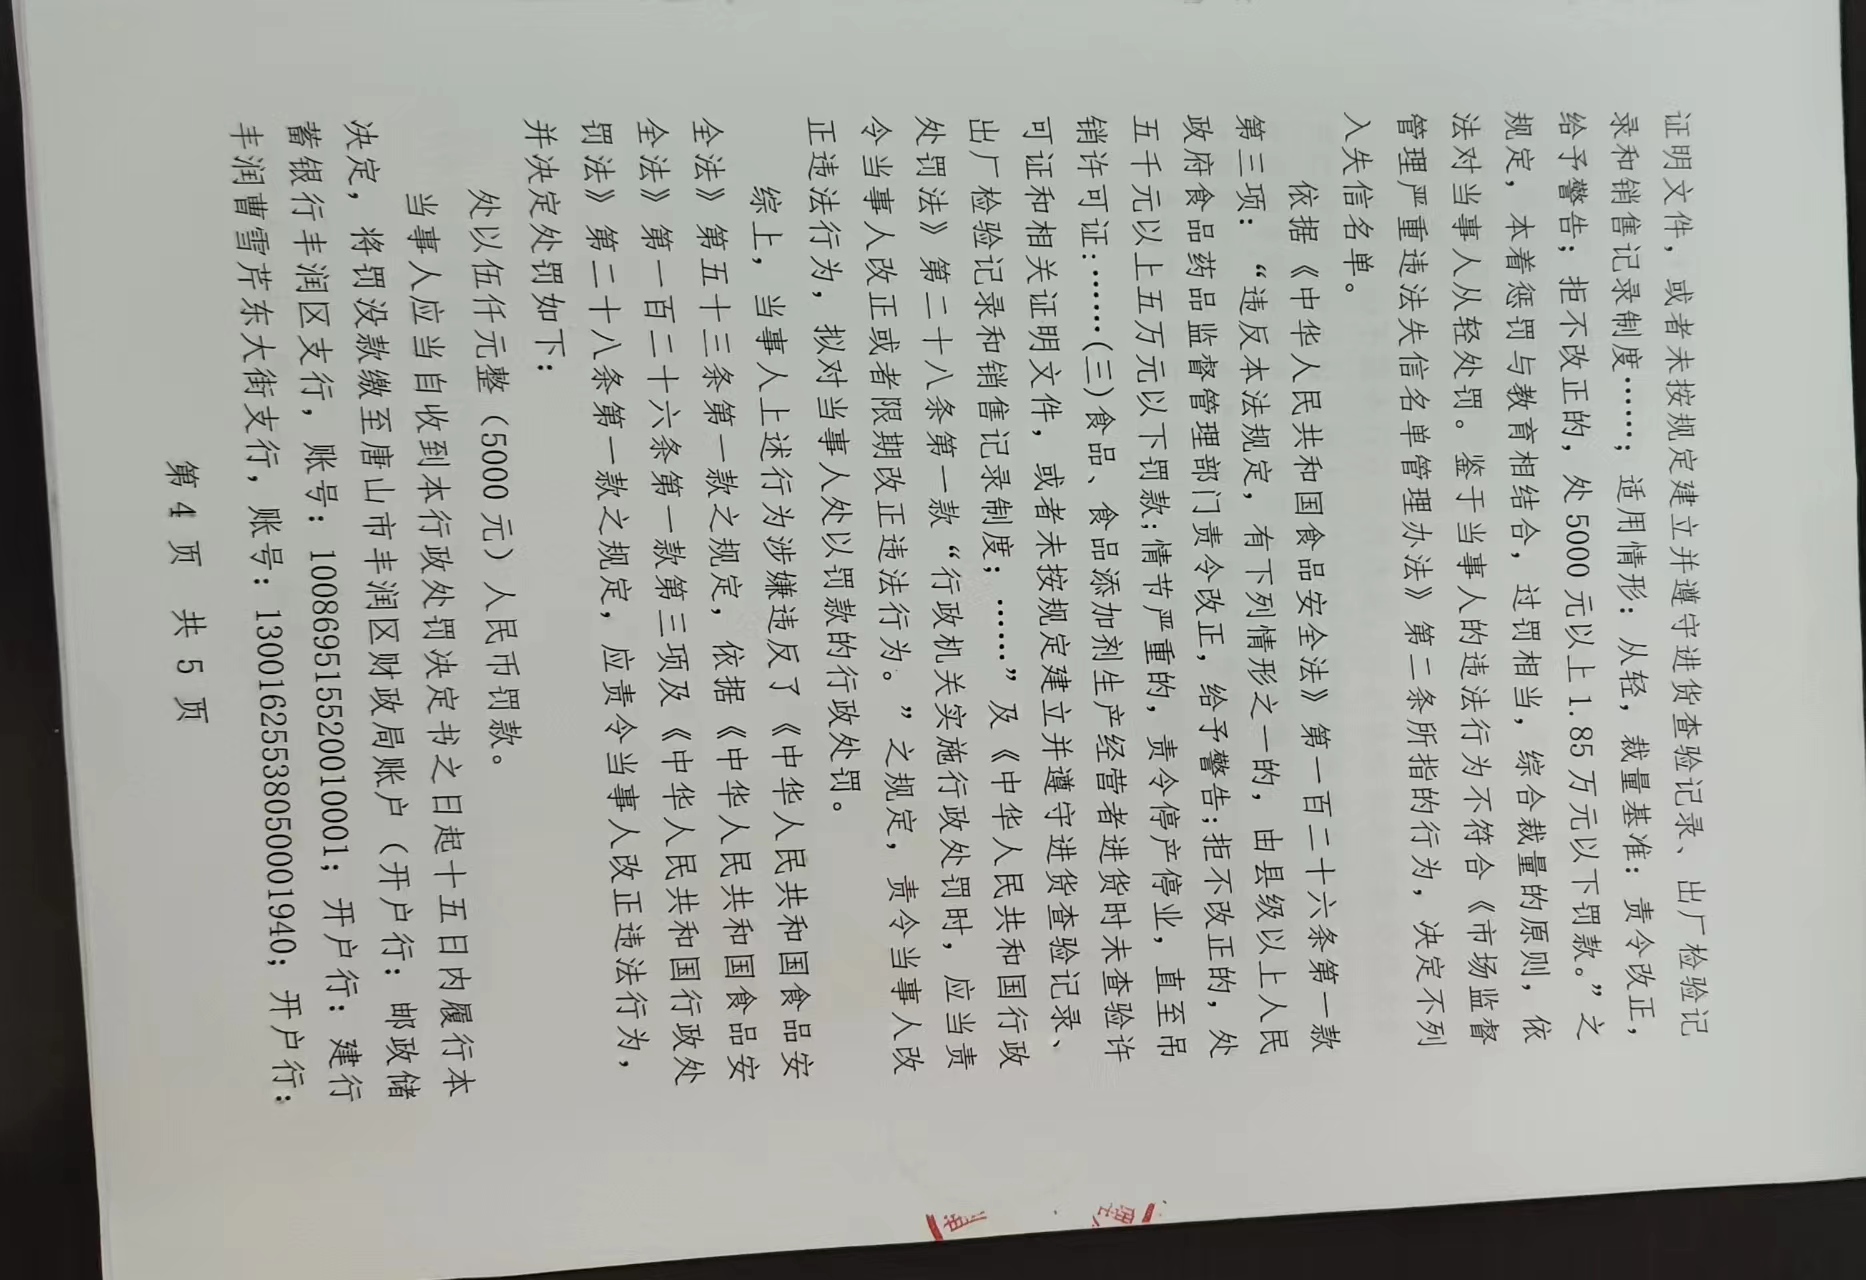 证明文件，或者未按规定建立并遵守进货查验记录、出厂检验记
录和销售记录制度……；适用情形：从轻，裁量基准：责令改正，
给予警告；拒不改正的，处5000元以上1.85万元以下罚款。”之
规定，本着惩罚与教育相结合，过罚相当，综合裁量的原则，依
法对当事人从轻处罚。鉴于当事人的违法行为不符合《市场监督
管理严重违法失信名单管理办法》第二条所指的行为，决定不列
入失信名单。
依据《中华人民共和国食品安全法》第一百二十六条第一款
第三项：“违反本法规定，有下列情形之一的，由县级以上人民
政府食品药品监督管理部门责令改正，给予警告;拒不改正的，处
五千元以上五万元以下罚款;情节严重的，责令停产停业，直至吊
销许可证:……(三)食品、食品添加剂生产经营者进货时未查验许
可证和相关证明文件，或者未按规定建立并遵守进货查验记录、
出厂检验记录和销售记录制度；……”及《中华人民共和国行政
处罚法》第二十八条第一款“行政机关实施行政处罚时，应当责
令当事人改正或者限期改正违法行为。”之规定，责令当事人改
正违法行为，拟对当事人处以罚款的行政处罚。
综上，当事人上述行为涉嫌违反了《中华人民共和国食品安
全法》第五十三条第一款之规定，依据《中华人民共和国食品安
全法》第一百二十六条第一款第三项及《中华人民共和国行政处
罚法》第二十八条第一款之规定，应责令当事人改正违法行为，
并决定处罚如下：
处以伍仟元整（5000元）人民币罚款。
当事人应当自收到本行政处罚决定书之日起十五日内履行本
决定，将罚没款缴至唐山市丰润区财政局账户（开户行：邮政储
蓄银行丰润区支行，账号：100869515520010001；开户行：建行
丰润曹雪芹东大街支行，账号：13001625538050001940；开户行：
第4页 共5页